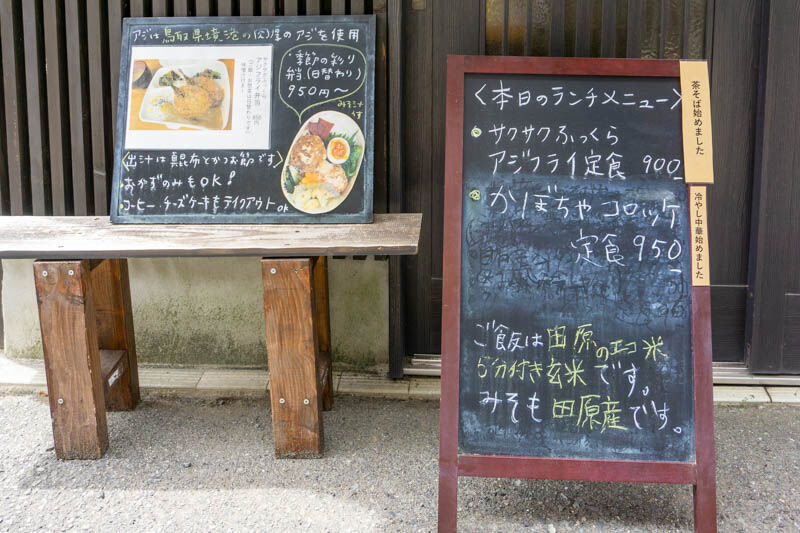 アジは鳥取県境港の公庫のアジを使用
アジフライ弁当
季節の彩り
弁当(日替わり)
950円〜
みそ汁付
〈出汁は昆布とかつお節です〉
・おかずのみもOK!
・コーヒー、チーズケーキもテイクアウトOK
〈本日のランチメニュー〉
サクサクふっくら
アジフライ定食 900
かぼちゃコロッケ
定食 950
ご飯は田原のエコ米
5分付き玄米です。
みそも田原産です。
茶そば始めました
冷やし中華始めました